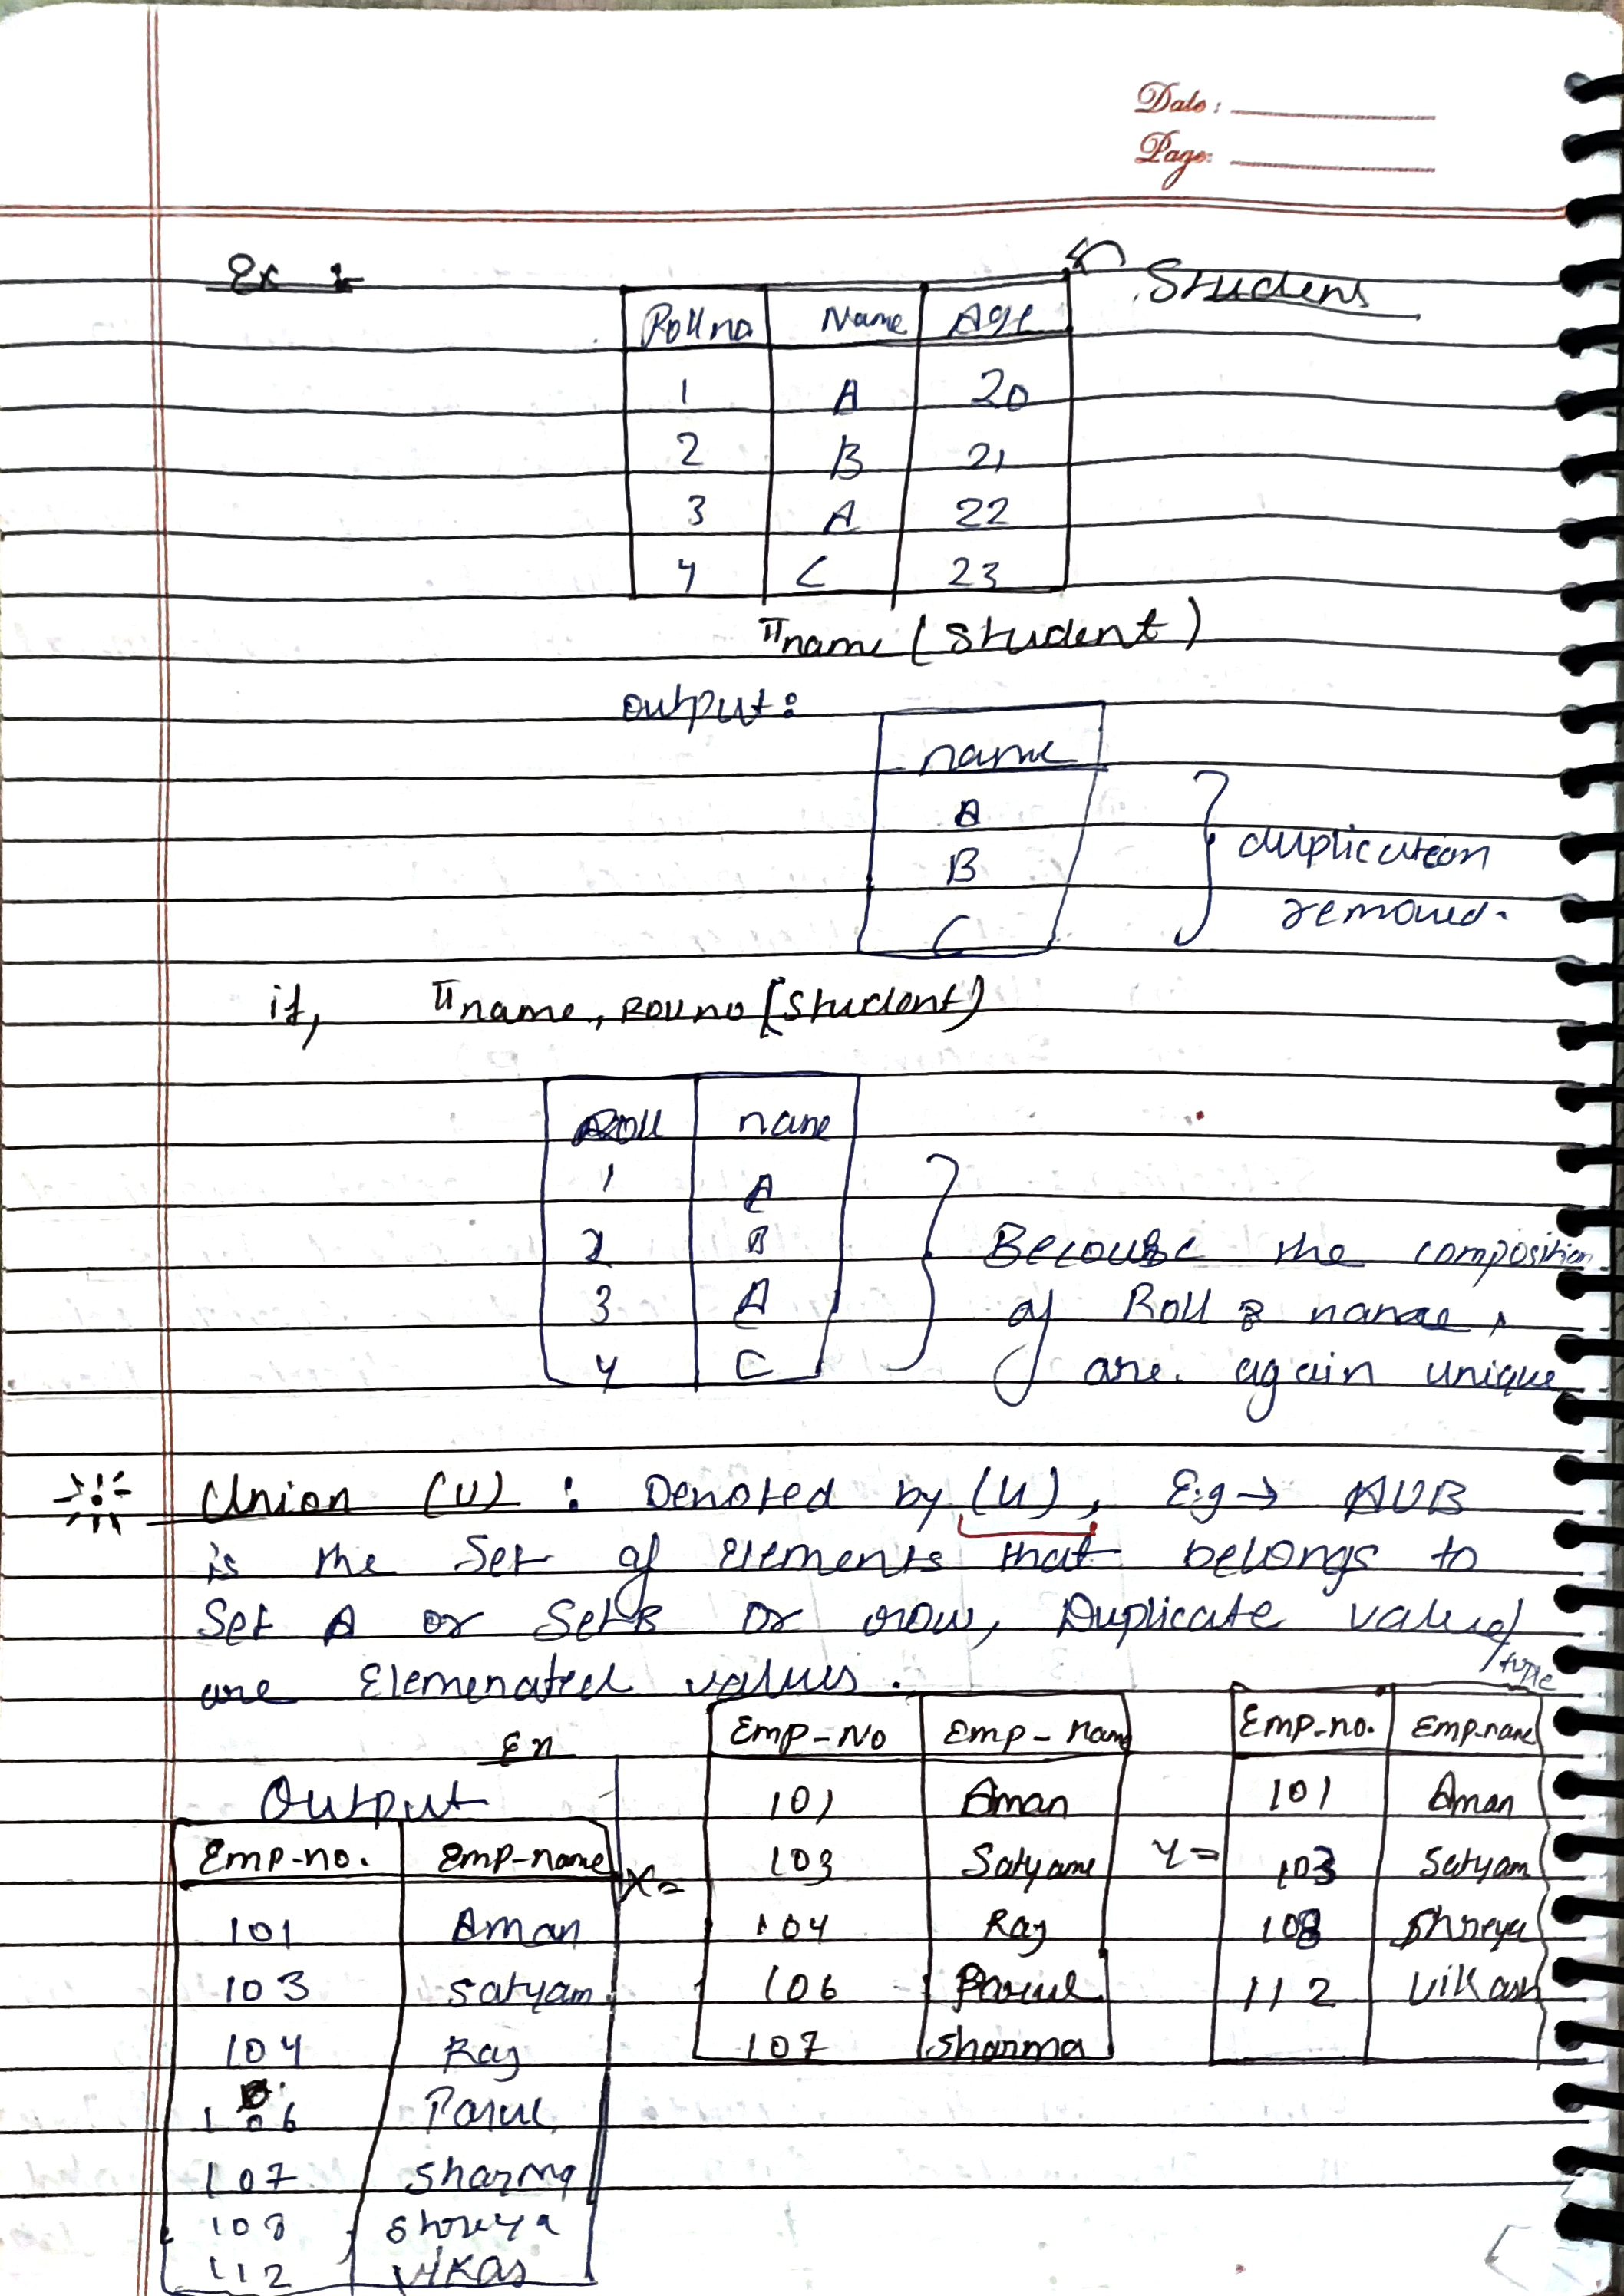 Date:
Page:
Ex 1
Student
Rollno Name Age
1 A 20
2 B 21
3 A 22
4 C 23
πname (Student)
output:
name
A
B
C
duplication
removed.
if, πname, Rollno (Student)
Roll name
1 A
2 B
3 A
4 C
Because the composition
of Roll & name
are again unique
Union (U) : Denoted by (U), E.g → AUB
is the Set of Elements that belongs to
Set A or Set B or, Duplicate value/
tuple
are Elemenated values.
Ex
X =
Emp-No Emp-Name
101 Aman
103 Satyame
104 Raj
106 Parul
107 Sharma
Y =
Emp-no. Emp-name
101 Aman
103 Satyam
108 Shreya
112 Vikash
Output
Emp-no. Emp-name
101 Aman
103 Satyam
104 Raj
106 Parul
107 Sharma
108 Shreya
112 Vikas